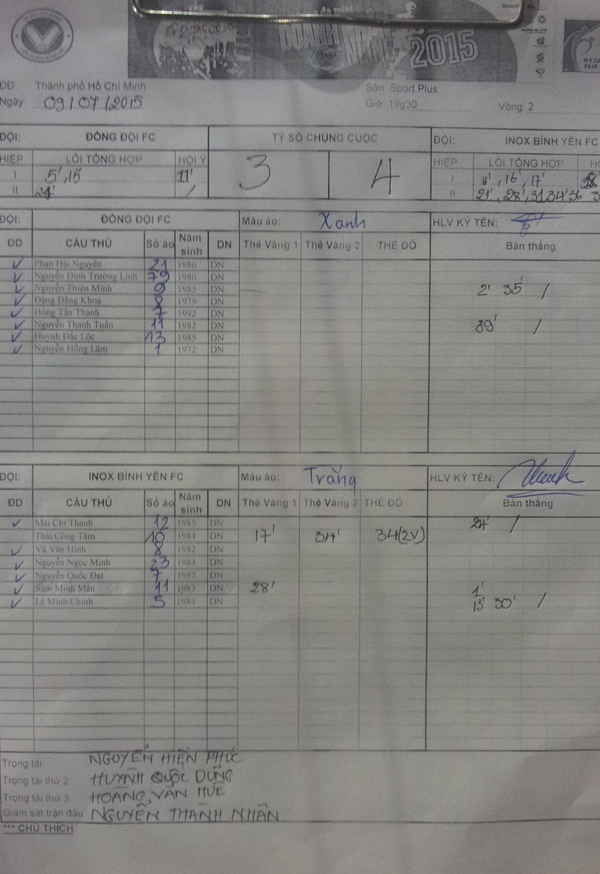 DOANH NHÂN 2015
ĐĐ: Thành phố Hồ Chí Minh Sân: Sport Plus
Ngày: 09/07/2015 Giờ: 19g30 Vòng: 2
ĐỘI: ĐỒNG ĐỘI FC TỶ SỐ CHUNG CUỘC ĐỘI: INOX BÌNH YÊN FC
HIỆP LỖI TỔNG HỢP HỘI Ý 3 4 HIỆP LỖI TỔNG HỢP
I 5', 15' 11' I 11', 16', 17'
II II 21', 28', 31, 34' 36
ĐỘI: ĐỒNG ĐỘI FC Màu áo: Xanh HLV KÝ TÊN:
ĐD CẦU THỦ Số áo Năm sinh DN Thẻ Vàng 1 Thẻ Vàng 2 THẺ ĐỎ Bàn thắng
Phan Hải Nguyên 21 1986 DN
Nguyễn Đình Trường Linh 79 1980 DN
Nguyễn Thiện Minh 9 1985 DN 2' 35' /
Đặng Đăng Khoa 8 1979 DN
Hồng Tấn Thạnh 7 1992 DN
Nguyễn Thanh Tuấn 11 1982 DN 39' /
Huỳnh Đắc Lộc 13 1985 DN
Nguyễn Hồng Lâm 1 1972 DN
ĐỘI: INOX BÌNH YÊN FC Màu áo: Trắng HLV KÝ TÊN:
ĐD CẦU THỦ Số áo Năm sinh DN Thẻ Vàng 1 Thẻ Vàng 2 THẺ ĐỎ Bàn thắng
Mai Chí Thanh 12 1985 DN /
Thái Công Tâm 10 1984 DN 17' 34' 34(2V)
Vũ Văn Hinh 8 1982 DN
Nguyễn Ngọc Minh 23 1984 DN
Nguyễn Quốc Đạt 7 1987 DN
Sâm Minh Mẫn 11 1983 DN 28' 1'
Lê Minh Chính 5 1984 DN 13' 30' /
Trọng tài: NGUYỄN HIỀN PHÚC
Trọng tài thứ 2: HUỲNH QUỐC DŨNG
Trọng tài thứ 3: HOÀNG VĂN HUÊ
Giám sát trận đấu: NGUYỄN THÀNH NHÂN
*** CHÚ THÍCH